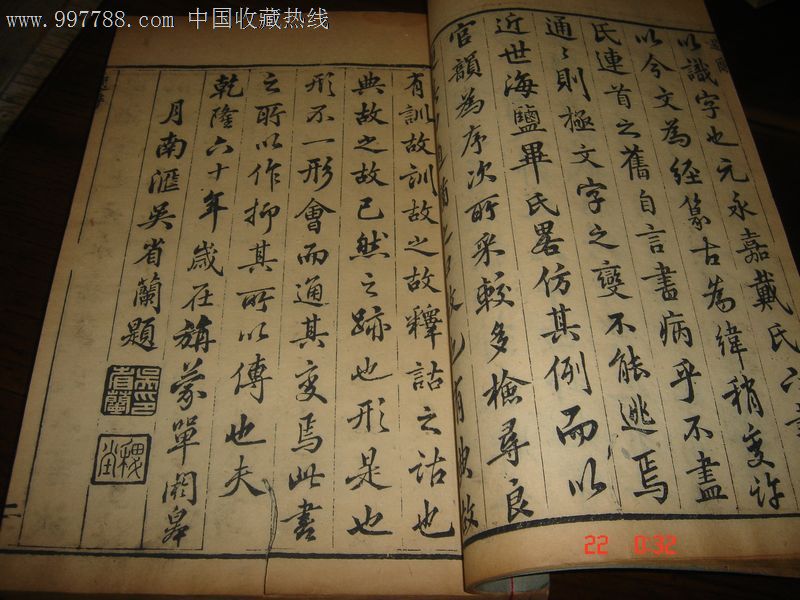 www.997788.com 中国收藏热线
以識字也元永嘉戴氏六書
以今文為經篆古為緯稍變許
氏連首之舊自言書病乎不盡
通通則極文字之變不能逃焉
近世海鹽畢氏畧仿其例而以
官韻為序次所采較多檢尋良
也有典故
有訓故訓故之故釋詁之詁也
典故之故已然之跡也形是也
形不一形會而通其變焉此書
之所以作抑其所以傳也夫
乾隆六十年歲在旃蒙單閼皋
月南滙吳省蘭題
吳省蘭印
稷堂
二
22 0:32